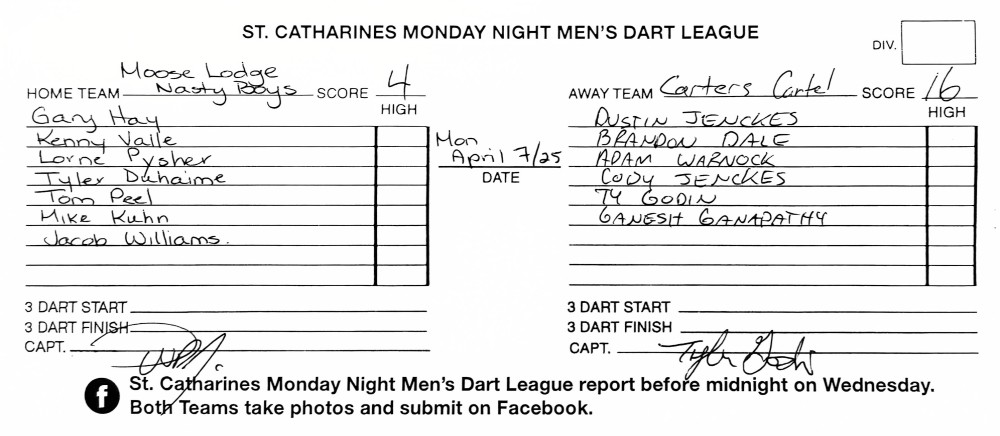 ST. CATHARINES MONDAY NIGHT MEN'S DART LEAGUE
DIV.
Moose Lodge
HOME TEAM Nasty Boys SCORE 4
HIGH
Gary Hay
Kenny Valle
Lorne Pysher
Tyler Duhaime
Tom Peel
Mike Kuhn
Jacob Williams.
Mon
April 7/25
DATE
AWAY TEAM Carters Cartel SCORE 16
HIGH
DUSTIN JENCKES
BRANDON DALE
ADAM WARNOCK
CODY JENCKES
TY GODIN
GANESH GANAPATHY
3 DART START
3 DART FINISH
CAPT.
3 DART START
3 DART FINISH
CAPT. Tyler Godin
f St. Catharines Monday Night Men's Dart League report before midnight on Wednesday.
Both Teams take photos and submit on Facebook.